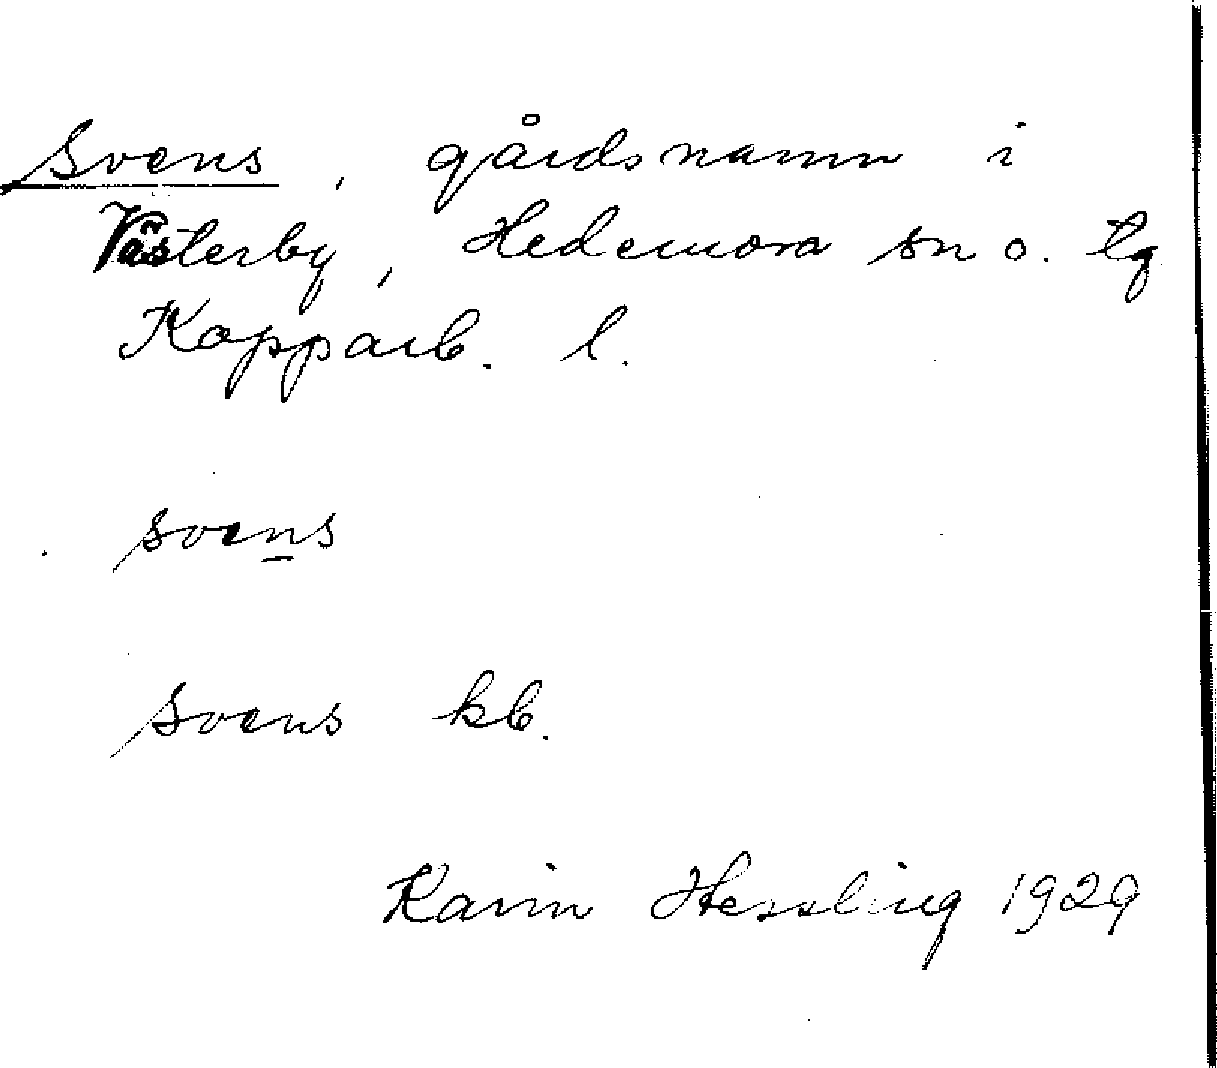 Svens, gårdsnamn i
Västerby, Hedemora sn o. tg
Kopparb. l.
svens
Svens kb.
Karin Hessling 1929